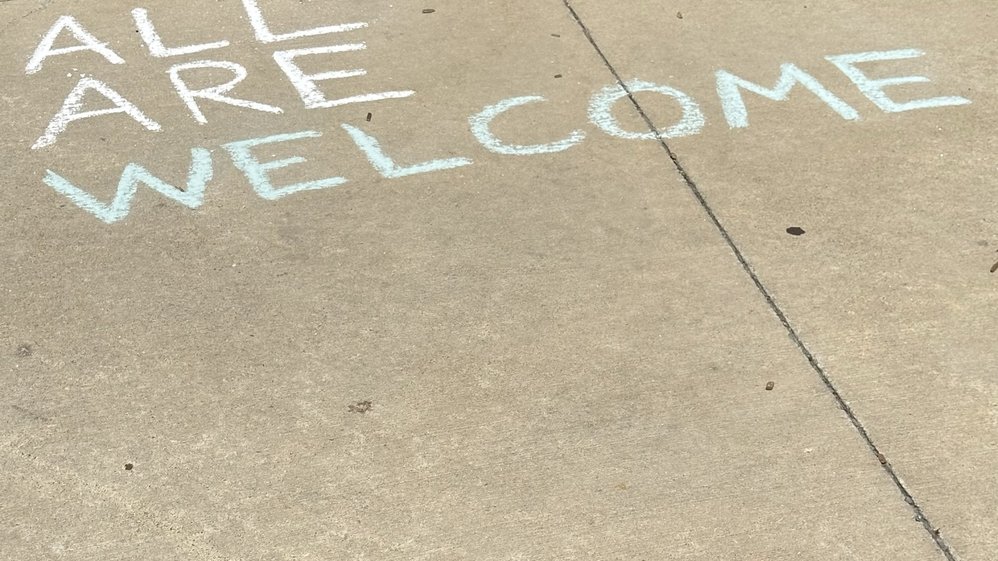 ALL
ARE
WELCOME